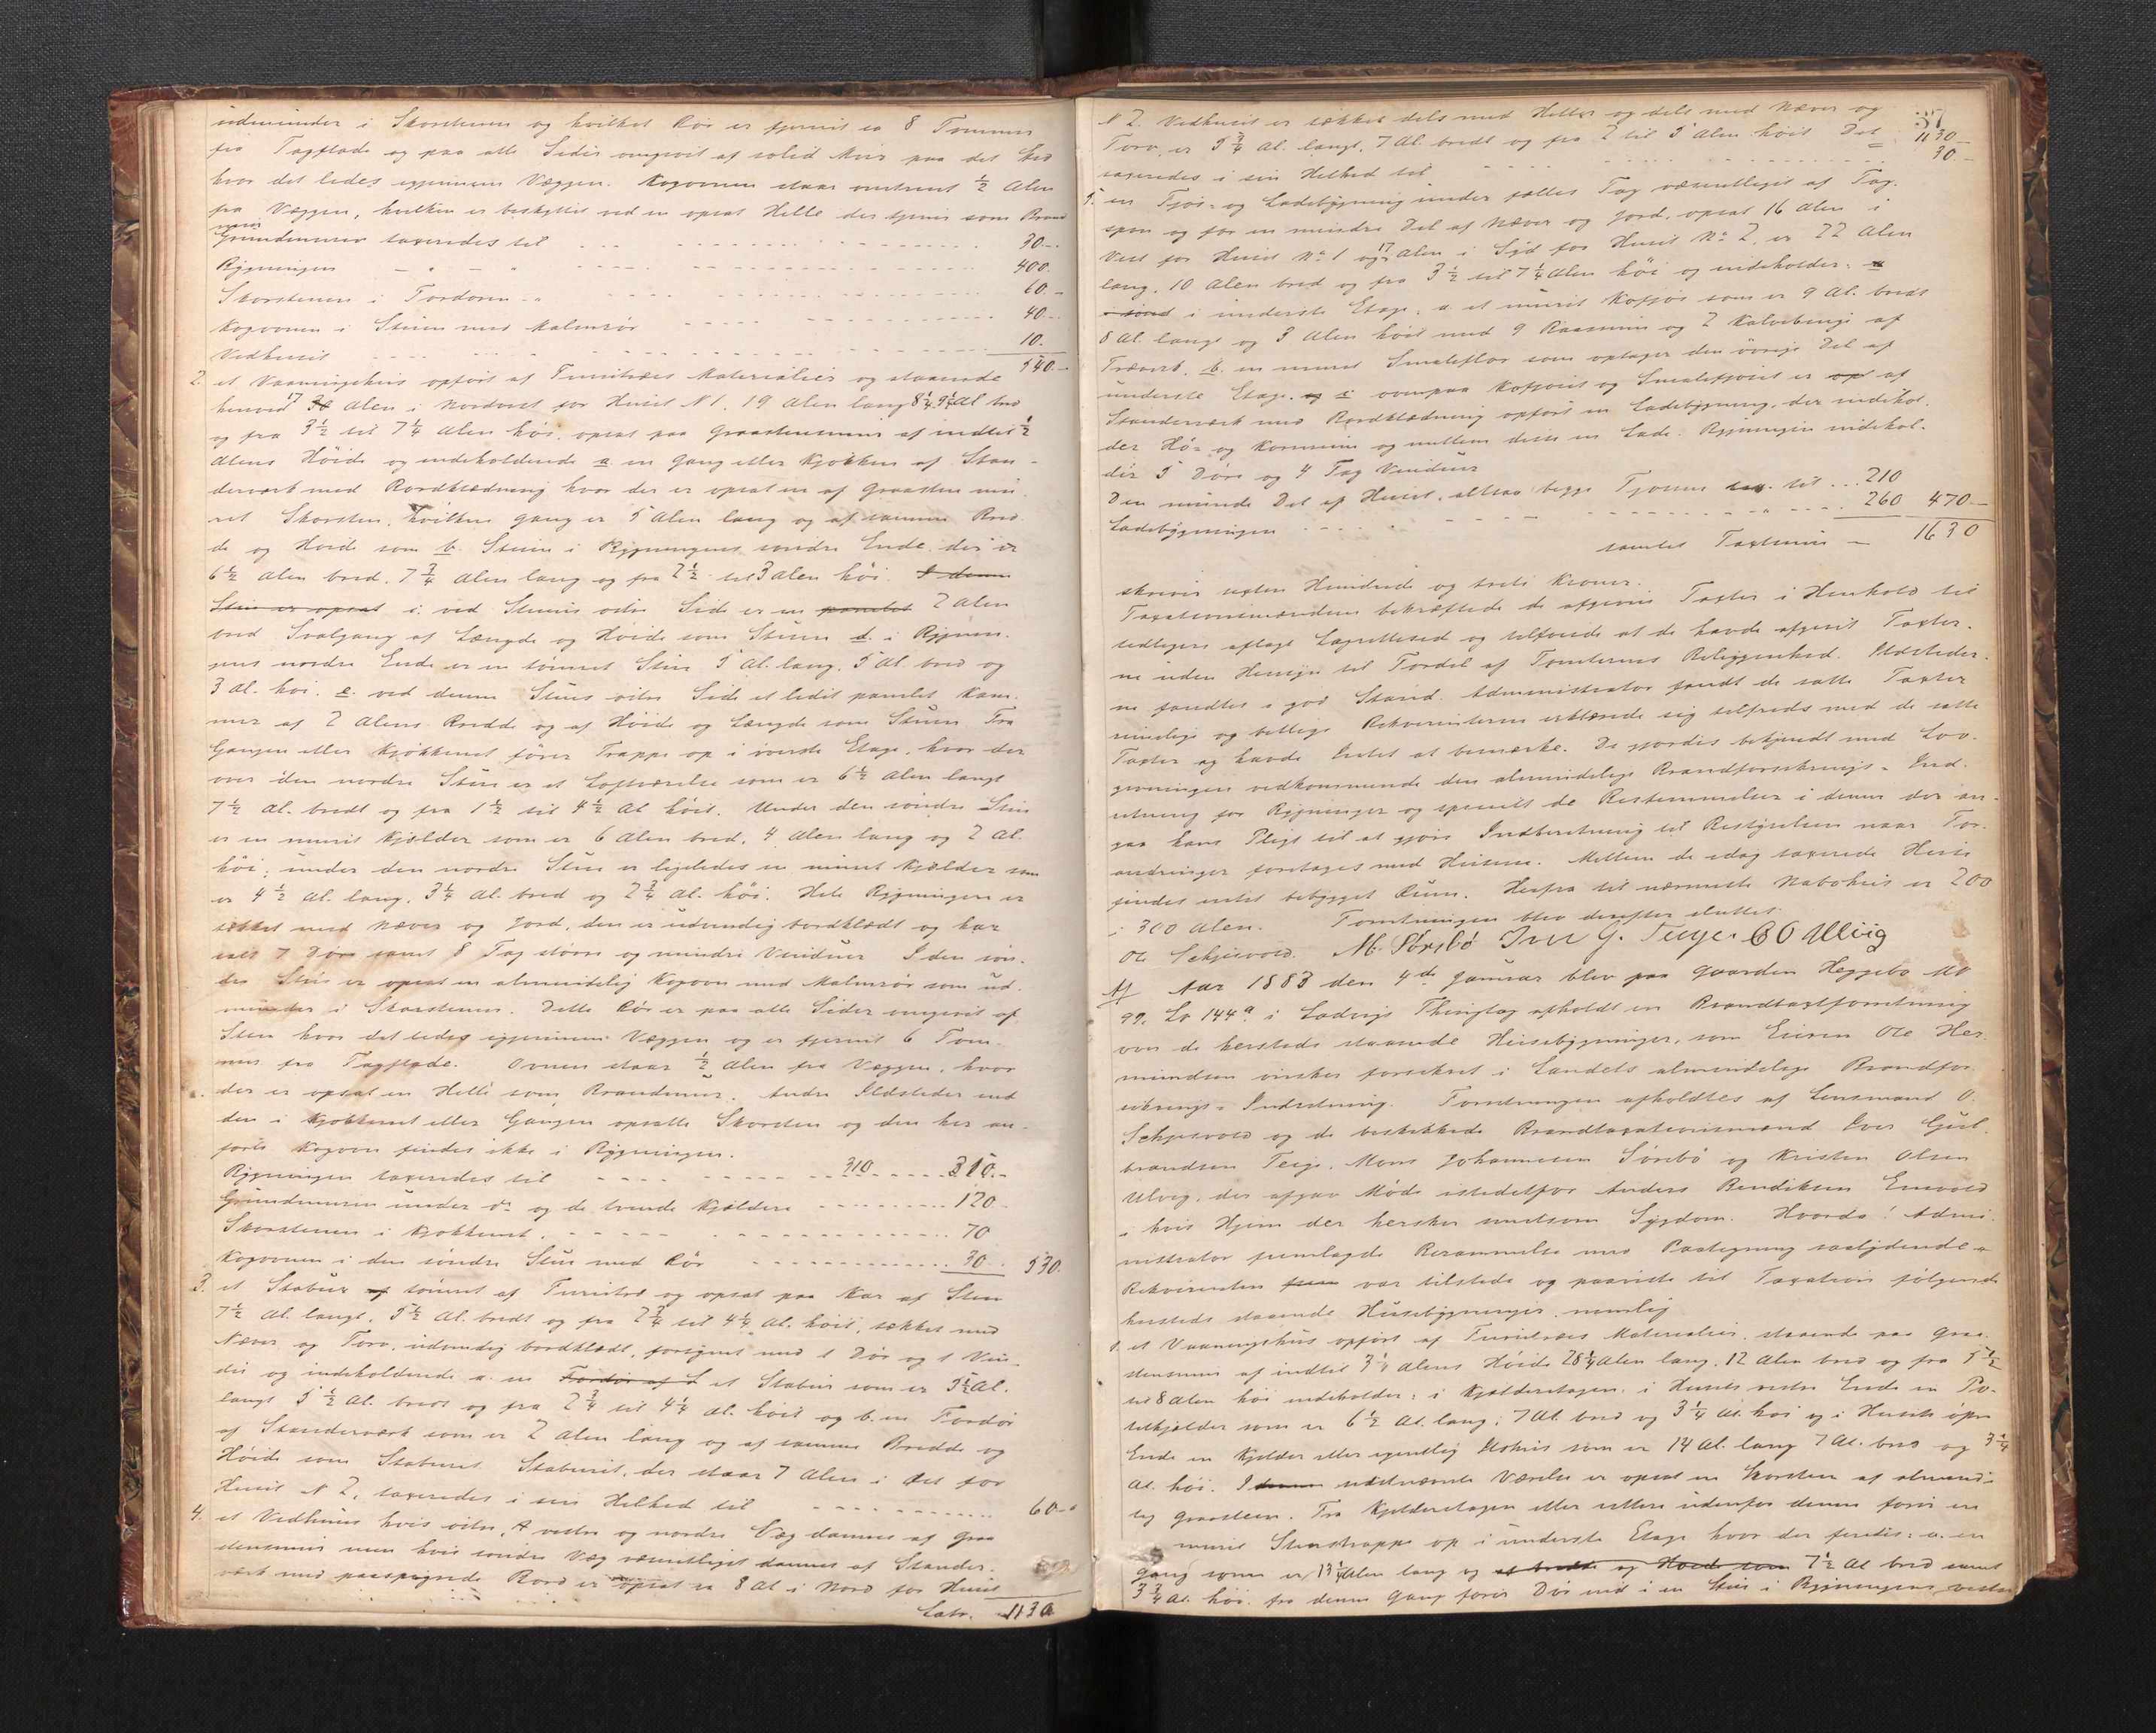 udmunder i Skorstenen og hvilket Rör er fjernet ca 8 Tommer
fra Tagflade og paa alle Sider omgivet af solid Mur paa det Sted
hvor det ledes igjennem Væggen. Kogovnen staar omtrent ½ Alen
fra Væggen, hvilken er beskyttet ved en opsat Helle der tjener som Brand
mur
Grundmuren taxeredes til 30.-
Bygningen - " - " 400.
Skorstenen i Fordören " 60.-
Kogovnen i Stuen med Malmrör 40.-
Vedhuset 10.
540.-
2. et Vaaningshus opført af Furutræes Materialier og staaende
herved 17 Alen i Nordvest for Huset N 1. 19 Alen lang 8¼ 9¼ Al bred
og fra 3½ til 7¼ Alen höi, opsat paa Graastensmur af indtil ½
Alens Höide og indeholdende a en Gang eller Kjökken af Stan-
derværk med Bordklædning hvor der er opsat en af Graasten mu-
ret Skorsten, hvilken Gang er 5 Alen lang og af samme Bred-
de og Hoide som b. Stuen i Bygningens søndre Ende der er
6½ Alen bred, 7¾ Alen lang og fra 2½ til 3 Alen höi. I denne
Stue er opsat c. ved Stuens östre Side er en panelet 2 Alen
bred Svalgang af Længde og Höide som Stuen d. i Bygnin-
gens nordre Ende er en tømret Stue 5 Al. lang, 5 Al. bred og
3 Al. høi. e. ved denne Stues östre Side et lidet panelet Kam-
mer af 2 Alens Bredde og af Höide og Længde som Stuen. Fra
Gangen eller Kjökkenet fører Trappe op i överste Etage, hvor der
over den nordre Stue er et Loftværelse som er 6½ Alen langt
7½ Al. bredt og fra 1½ til 4½ Al höit. Under den söndre Stue
er en muret Kjælder som er 6 Alen bred, 4 Alen lang og 2 Al.
höi; under den nordre Stue er ligeledes en muret Kjælder som
er 4½ Al. lang, 3¼ Al. bred og 2¾ Al. höi. Hele Bygningen er
tækket med Næver og Jord, den er udvendig bordklædt og har
ialt 7 Döre samt 8 Fag större og mindre Vinduer. I den sön-
dre Stue er opsat en almindelig Kogovn med Malmrör som ud-
munder i Skorstenen. Dette Rör er paa alle Sider omgivet af
Sten hvor det ledes igjennem Væggen og er fjernet 6 Tom-
mer fra Tagflade. Ovnen staar ½ Alen fra Væggen, hvor
der er opsat en Helle som Brandmur. Andre Ildsteder end
den i Kjøkkenet eller Gangen opsatte Skorsten og den her an-
førte Kogovn findes ikke i Bygningen.
Bygningen taxeredes til 310 310.-
Grundmuren under do og de tvende Kjældere 120.-
Skorstenen i Kjøkkenet 70
Kogovnen i den söndre Stue med Rör 30.- 530.
3. et Stabur af tömret af Furutræ og opsat paa Kar af Sten
7½ Al. langt, 5½ Al. bredt og fra 2¾ til 4¼ Al. höit, tækket med
Næver og Torv, udvendig bordklædt, forsynet med 1 Dör og 1 Vin-
due og indeholdende a. en Fordør af S et Stabur som er 5½ Al.
langt 5½ Al. bredt og fra 2¾ til 4¼ Al. höit og b. en Fordör
af Standerværk som er 2 Alen lang og af samme Bredde og
Höide som Staburet. Staburet, der staar 7 Alen i Öst for
Huset N 2, taxeredes i sin Helhed til 60.-
4. et Vedhuus hvis östre, vestre og nordre Væg dannes af Graa
stensmur men hvis söndre Væg væsentligst dannes af Stander-
værk med paaspigrede Bord er opsat ca 8 Al i Nord for Huset
Latr. 1130
37
N 2. Vedhuset er tækket dels med Heller og dels med Næver og 1130 -
Torv, er 5¾ Al. langt, 7 Al. bredt og fra 2 til 5 Alen höit. Det
taxeredes i sin Helhed til 30.-
5. en Fjös- og Ladebygning under fælles Tag væsentligst af Tag-
spon og for en mindre Del af Næver og Jord, opsat 16 Alen i
Vest for Huset No 1 og 17 Alen i Syd for Huset No 2, er 22 Alen
lang, 10 Alen bred og fra 3½ til 7¼ Alen höi og indeholder: a
i underste Etage: a. et muret Kofjös som er 9 Al. bredt
8 Al. langt og 3 Alen höit med 9 Baasrum og 2 Kalvebinge af
Træverk, b. en muret Smaleflor som optager den övrige Del af
underste Etage, og c ovenpaa Kofjöset og Smalefjöset er op af
Standerværk med Bordklædning opført en Ladebygning, der indehol-
der Hö- og Kornrum og mellem disse en Lade. Bygningen indehol-
der 5 Döre og 4 Fag Vinduer
Den murede Del af Huset, altsaa begge Fjösene tax. til 210
Ladebygningen " 260 470.-
samlet Taxtsum - 1630
skriver sexten Hundrede og treti Kroner.
Taxationsmændene bekræftede de afgivne Taxter i Henhold til
tidligere aflagt Lagrettesed og tilföiede at de havde afgivet Taxter-
ne uden Hensyn til Fordel af Tomternes Beliggenhed. Ildsteder-
ne fandtes i god Stand. Administrator fandt de satte Taxter
rimelige og billige. Rekvirenterne erklærede sig tilfreds med de satte
Taxter og havde Intet at bemærke. De gjordes bekjendt med Lov-
givningen vedkommende den almindelige Brandforsikrings-Ind-
retning for Bygninger og specielt de Bestemmelser i denne der an-
gaa hans Pligt til at gjøre Indberetning til Bestyrelsen naar For-
andringer foretages med Husene. Mellem de idag taxerede Huse
findes intet bebygget Rum. Herfra til nærmeste Nabohus er 200
á 300 Alen. Forretningen blev derefter sluttet.
Ole Schjesvold. M. Sørsbö Iver G. Teige K O Ulvig
Aar 1883 den 4de Januar blev paa Gaarden Heggebø M No
99, Lb 144a i Ladvigs Thinglag afholdt en Brandtaxtforretning
over de hersteds staaende Husebygninger, som Eieren Ole Her-
mundsen ønsker forsikret i Landets almindelige Brandfor-
sikrings-Indretning. Forretningen afholdtes af Lensmand O.
Schjesvold og de beskikkede Brandtaxationsmænd Iver Gul-
brandsen Teige, Mons Johannesen Sörebö og Kristen Olsen
Ulvig, der afgav Möde istedetfor Anders Bendiksen
i hvis Hjem der hersker smitsom Sygdom. Hvorda! Admi-
nistrator fremlagde Berammelse med Paategning saalydende
Rekvirenten var tilstede og paaviste til Taxation følgende
hersteds staaende Husebygninger nemlig
1. et Vaaningshus opført af Furutræes Materialier, staaende paa Graa-
stensmur af indtil 3¼ Alens Höide 28¼ Alen lang, 12 Alen bred og fra 5½
til 8 Alen höi indeholder: i Kjælderetagen: i Husets vestre Ende en Po-
tetkjælder som er 6½ Al. lang, 7 Al. bred og 3¼ Al. höi og i Husets östre
Ende en Kjelder eller egentlig Ildhus som er 14 Al. lang 7 Al. bred og 3¼
Al. höi. I denne sidstnævnte Værelse er opsat en Skorsten af almindi-
lig Graasteen. Fra Kjelderetagen eller rettere udenfor denne fører en
muret Stentrappe op i underste Etage hvor der findes: a. en
Gang som er 13¼ Alen lang og af bredde og Höide som 7½ Al bred samt
3¾ Al. höi. fra denne Gang fører Dör ind i en Stue i Bygningens vestre